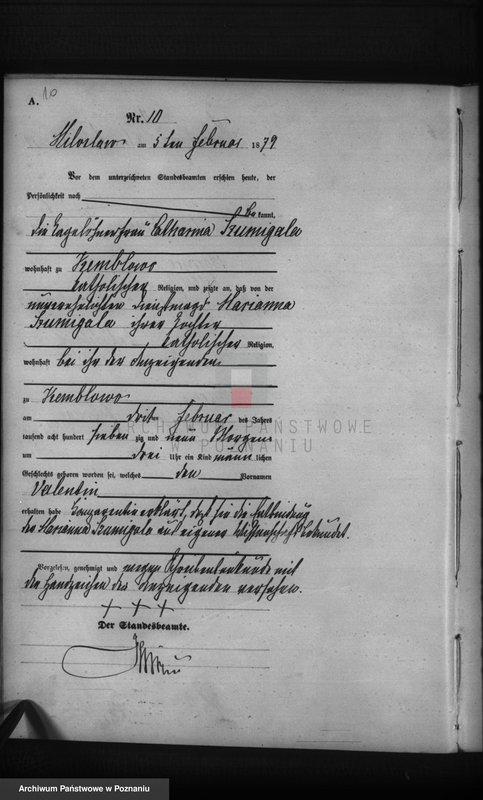 A. 10
Nr. 10
Miloslaw am 5ten Februar 1879
Vor dem unterzeichneten Standesbeamten erschien heute, der
Persönlichkeit nach
be kannt,
die Tagelöhnerfrau Catharina Szumigala
wohnhaft zu Kemblowo
katholischer Religion, und zeigte an, daß von der
unverehelichten Dienstmagd Marianna
Szumigala ihrer Tochter
katholischer Religion,
wohnhaft bei ihr der Anzeigenden
zu Kemblowo
am drit Februar des Jahres
tausend acht hundert sieben zig und neun Morgens
um drei Uhr ein Kind männ lichen
Geschlechts geboren worden sei, welches den Vornamen
Valentin
erhalten habe erklärt, daß sie die Entbindung
der Marianna Szumigala aus eigener Wissenschaft bekundet.
Vorgelesen, genehmigt und wegen Schreibensunkunde mit
den Handzeichen der Anzeigenden versehen.
+ + +
Der Standesbeamte.
ARCHIWUM PAŃSTWOWE
W POZNANIU
Archiwum Państwowe w Poznaniu